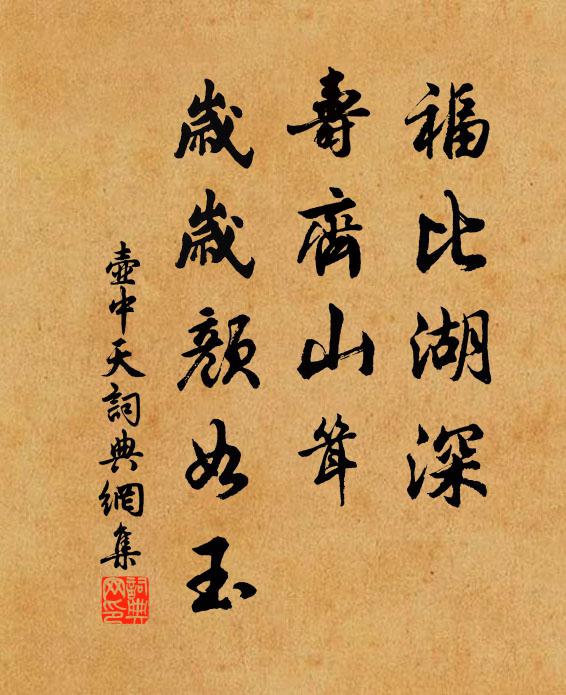 福比湖深
壽齊山聳
歲歲顏如玉
壺中天詞典網集
詞典网印